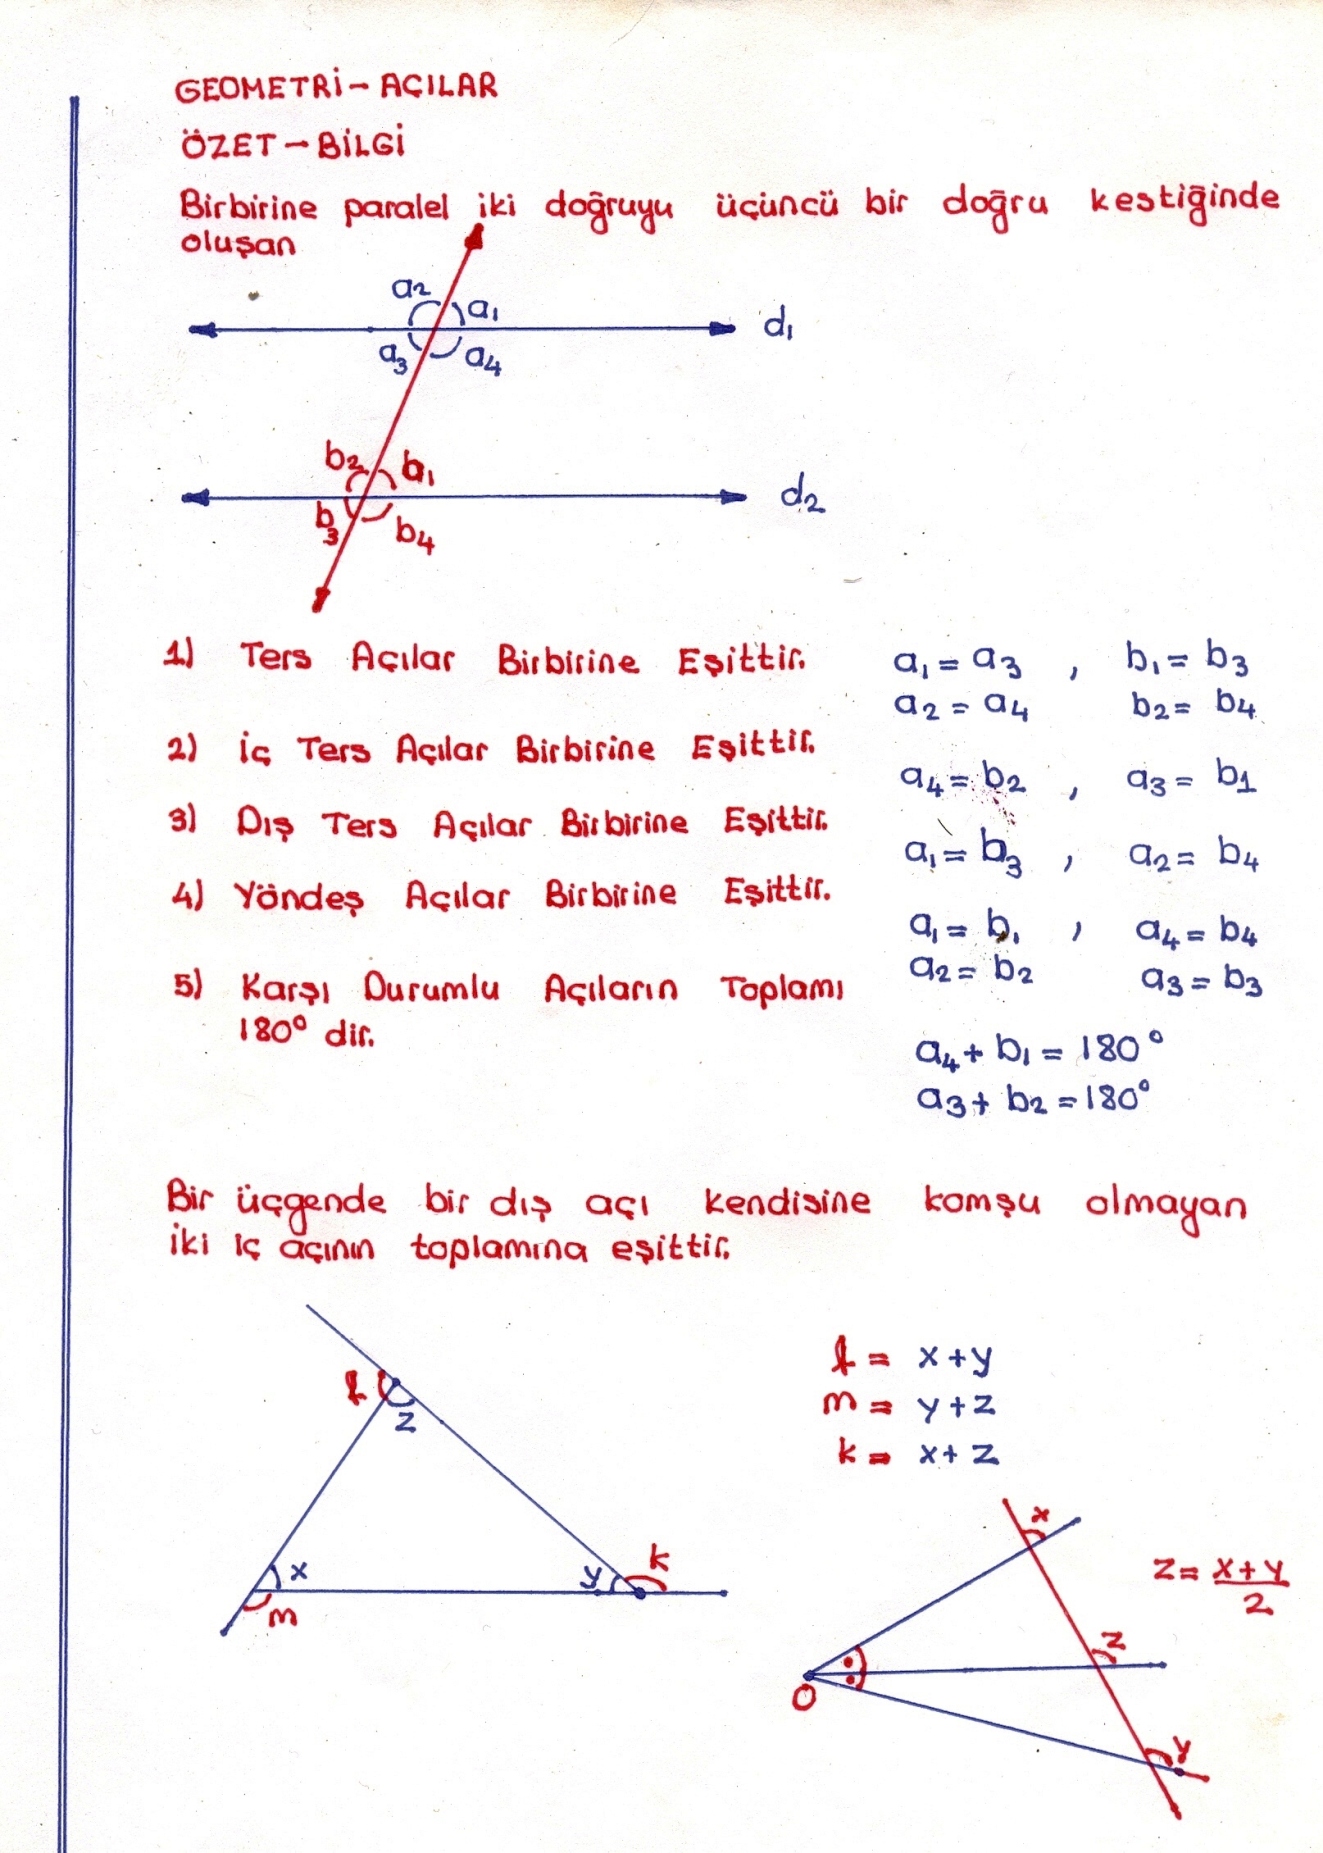 GEOMETRİ - AÇILAR
ÖZET - BİLGİ
Birbirine paralel iki doğruyu üçüncü bir doğru kestiğinde
oluşan
a₂ a₁
d₁
a₃ a₄
b₂ b₁
d₂
b₃ b₄
1) Ters Açılar Birbirine Eşittir. a₁ = a₃ , b₁ = b₃
a₂ = a₄ b₂ = b₄
2) İç Ters Açılar Birbirine Eşittir.
a₄ = b₂ , a₃ = b1
3) Dış Ters Açılar Birbirine Eşittir.
a₁ = b₃ , a₂ = b₄
4) Yöndeş Açılar Birbirine Eşittir.
a₁ = b₁ , a₄ = b₄
a₂ = b₂ a₃ = b₃
5) Karşı Durumlu Açıların Toplamı
180° dir.
a₄ + b₁ = 180°
a₃ + b₂ = 180°
Bir üçgende bir dış açı kendisine komşu olmayan
iki iç açının toplamına eşittir.
l = x + y
m = y + z
k = x + z
l
z
x
y
k
m
x
z = x + y / 2
z
O
y